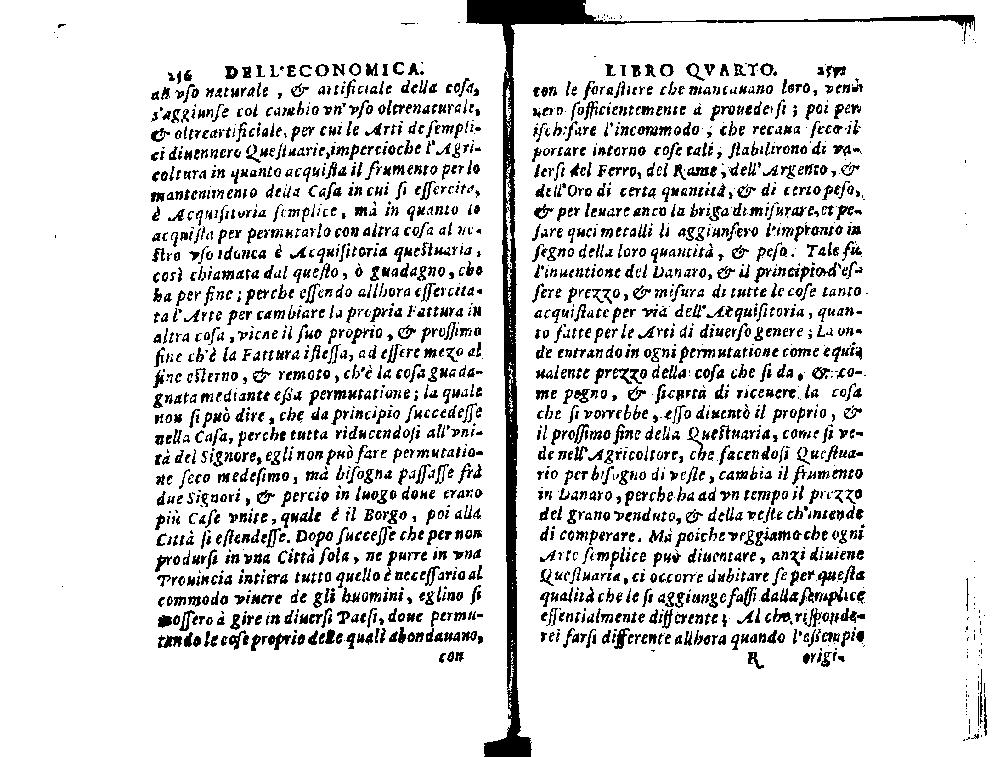 256 DELL'ECONOMICA.
all'vso naturale, & artificiale della cosa,
s'aggiunse col cambio vn'vso oltrenaturale,
& oltreartificiale, per cui le Arti de sempli-
ci diuennero Questuarie, impercioche l'Agri-
coltura in quanto acquista il frumento per lo
mantenimento della Casa in cui si essercita,
è Acquisitoria semplice, mà in quanto lo
acquista per permutarlo con altra cosa al no-
stro vso idonea è Acquisitoria questuaria,
così chiamata dal questo, ò guadagno, che
ha per fine; perche essendo allhora essercita-
ta l'Arte per cambiare la propria Fattura in
altra cosa, viene il suo proprio, & prossimo
fine ch'è la Fattura istessa, ad essere mezo al
fine esterno, & remoto, ch'è la cosa guada-
gnata mediante essa permutatione; la quale
non si può dire, che da principio succedesse
nella Casa, perche tutta riducendosi all'vni-
tà del Signore, egli non può fare permutatio-
ne seco medesimo, mà bisogna passasse frà
due Signori, & percio in luogo doue erano
più Case vnite, quale è il Borgo, poi alla
Città si estendesse. Dopo successe che per non
prodursi in vna Città sola, ne purre in vna
Prouincia intiera tutto quello è necessario al
commodo viuere de gli huomini, eglino si
mossero à gire in diuersi Paesi, doue permu-
tando le cose proprio delle quali abondauano,
con
LIBRO QVARTO. 257
con le forastiere che mancauano loro, venni
uero sofficientemente à prouedersi; poi per
ischifare l'incommodo, che recaua seco il
portare intorno cose tali, stabilirono di va-
lersi del Ferro, del Rame, dell'Argento, &
dell'Oro di certa quantità, & di certo peso,
& per leuare anco la briga di misurare, et pe-
sare quei metalli li aggiunsero l'impronto in
segno della loro quantità, & peso. Tale fù
l'inuentione del Danaro, & il principio d'es-
sere prezzo, & misura di tutte le cose tanto
acquistate per via dell'Acquisitoria, quan-
to fatte per le Arti di diuerso genere; La on-
de entrando in ogni permutatione come equi
ualente prezzo della cosa che si da, & co-
me pegno, & sicurtà di riceuere la cosa
che si vorrebbe, esso diuentò il proprio, &
il prossimo fine della Questuaria, come si ve-
de nell'Agricoltore, che facendosi Questua-
rio per bisogno di veste, cambia il frumento
in Danaro, perche ha ad vn tempo il prezzo
del grano venduto, & della veste ch'intende
di comperare. Mà poiche veggiamo che ogni
Arte semplice può diuentare, anzi diuiene
Questuaria, ci occorre dubitare se per questa
qualità che le si aggiunge fassi dalla semplice
essentialmente differente; Al che risponde-
rei farsi differente allhora quando l'essempio
R origi-